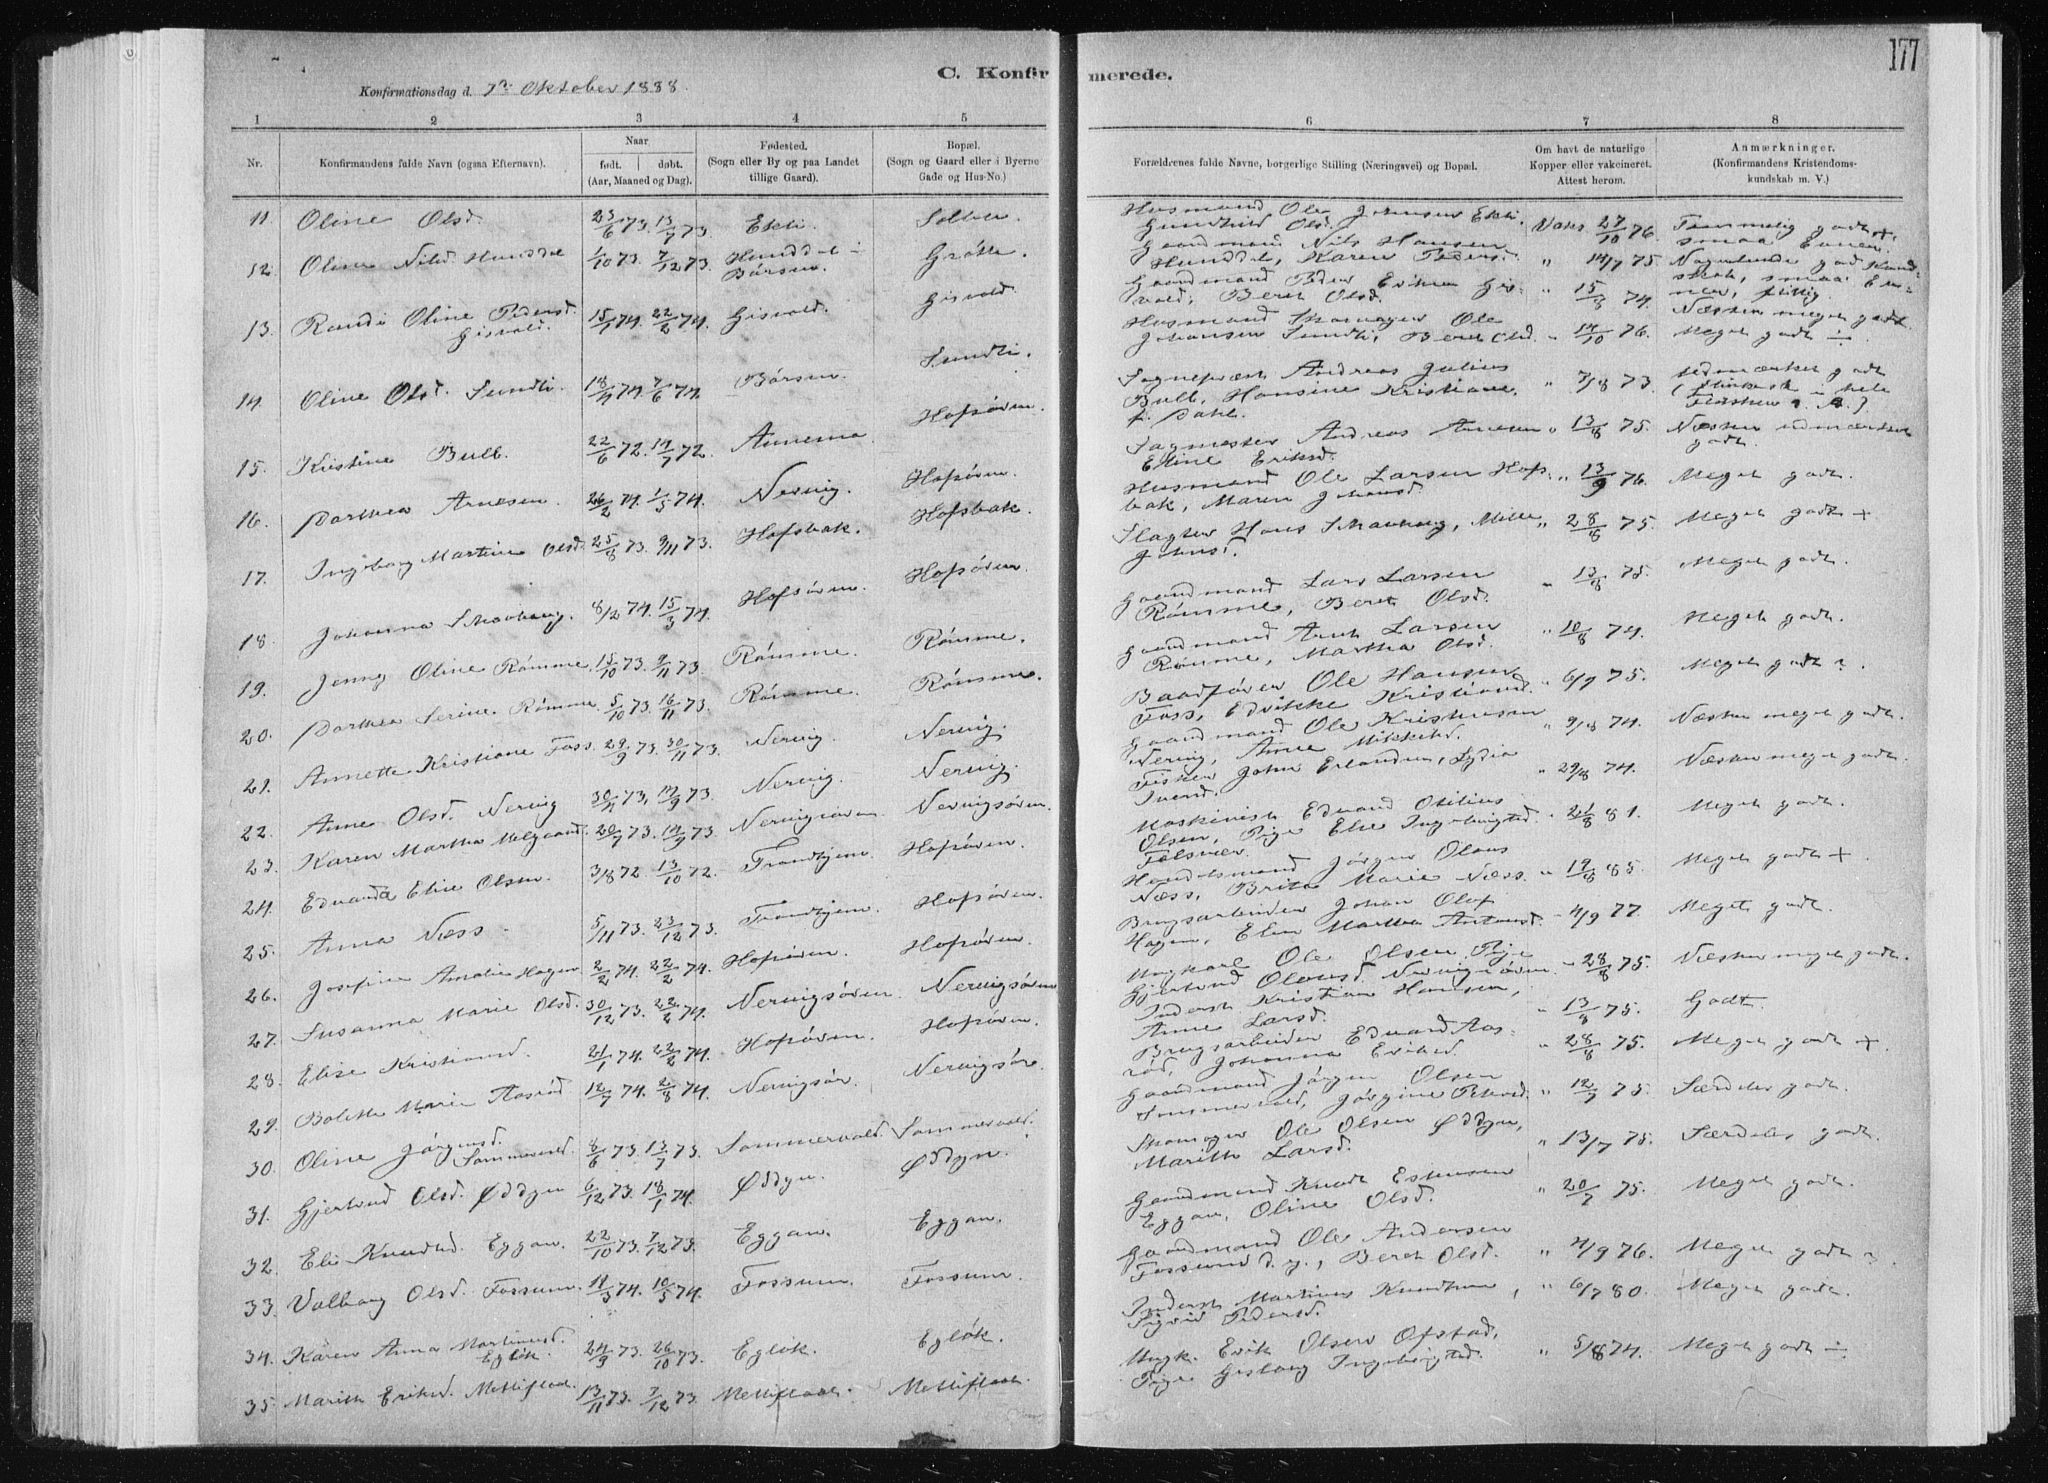 177
C. Konfirmerede.
Konfirmationsdag d. 7de Oktober 1888.
1 2 3 4 5 6 7 8
Nr. Konfirmandens fulde Navn (ogsaa Efternavn). Naar født. døbt. (Aar, Maaned og Dag). Fødested. (Sogn eller By og paa Landet tillige Gaard). Bopæl. (Sogn og Gaard eller i Byerne Gade og Hus-No.) Forældrenes fulde Navne, borgerlige Stilling (Næringsvei) og Bopæl. Om havt de naturlige Kopper eller vakcineret. Attest herom. Anmærkninger. (Konfirmandens Kristendomskundskab m. V.)
11. Oline Olsd. 23/6 73. 13/7 73. Ekli Husmand Ole Johnsen Ekli. Gunhild Olsd. Vaks. 27/10 76. Temmelig godt + smaa Evner.
12. Oline Nilsd. Hunddal 1/10 73. 7/12 73. Hunddal i Børsen. Grøtte. Gaardmand Nils Hansen Hunddal, Karen Peders. " 14/7 75.
13. Randi Oline Pedersd. Gisvold. 15/1 74. 22/2 74. Gisvold. Gisvold. Gaardmand Peder Eriksen Gisvold, Beret Olsd. " 15/8 74. Næsten meget godt.
14. Oline Olsd. Sundli. 18/4 74. 7/6 74. Børsen. Sundli. Husmand Skomager Ole Johansen Sundli, Beret Olsd. " 14/10 76. Meget godt ÷.
15. Kristine Bull. 22/6 72. 14/7 72. Hofsøren. Sogneprest Andreas Julius Bull, Hansine Kristiane, f. Dahl. " 7/8 73. Udmærket godt
16. Dorthea Arnesen. 26/2 74. 1/5 74. Nervig. Hofsøren. Sagmester Andreas Arnesen Eline Eriksd. " 13/8 75. Næsten udmærket godt.
17. Ingeborg Martine Olsd. 25/8 73. 9/11 73. Hofsbak. Hofsbak. Husmand Ole Larsen Hofsbak, Maren Johansd. " 13/9 76. Meget godt.
18. Johanna Skavhaug. 8/2 74. 15/3 74. Hofsøren. Hofsøren. Slagter Hans Skavhaug, Mille Johnsd. " 28/8 75. Meget godt +
19. Jenny Oline Rømme. 15/10 73. 9/11 73. Rømme. Rømme. Gaardmand Lars Larsen Rømme, Beret Olsd. " 13/8 75. Meget godt.
20. Dorthea Serine Rømme. 5/10 73. 16/11 73. Rømme. Rømme. Gaardmand Arnt Larsen Rømme, Martha Olsd. " 10/8 74. Meget godt.
21. Annette Kristiane Foss. 29/9 73. 30/11 73. Nervig. Nervig. Baadfører Ole Hansen Foss, Edvikke Kristiansd. " 6/7 75. Meget godt ÷.
22. Anne Olsd. Nervig 14/9 73. Nervig. Nervig. Gaardmand Ole Kristensen Nervig, Anne Mikkelsd. " 9/8 74. Næsten meget godt.
23. Karen Martha Melgaard. 20/7 73. 14/9 73. Nervigsøren. Nervigsøren. Fisker John Erlandsen, Lydia Iversd. " 29/8 74. Næsten meget godt.
24. Edvarda Elise Olsen. 3/8 72. 13/10 72. Trondhjem. Hofsøren. Maskinist Edvard Otilius Olsen, Pige Else Ingebrigtsd. " 21/8 81. Meget godt.
25. Anna Næss. 5/11 73. 23/12 73. Trondhjem. Hofsøren. Handelsmand Jørgen Olaus Næss, Brita Marie Næss. " 19/8 85. Meget godt +.
26. Josefine Amalie Hagen 2/2 74. 22/2 74. Hofsøren. Hofsøren. Brugsarbeider Johan Olof Hagen, Elen Martha Antonsd. " 4/9 77. Meget godt.
27. Susanna Marie Olsd. 30/12 73. 22/2 74. Nervigsøren. Nervigsøren. Ungkarl Ole Olsen, Pige Gjertrud Olausd. Nervigsøren. " 28/8 75. Næsten meget godt.
28. Elise Kristiansd. 21/1 74. 22/2 74. Hofsøren. Hofsøren. Inderst Kristian Hansen, Anne Larsd. " 13/8 75. Godt
29. Bolette Marie Aasrød 12/7 74. 2/8 74. Nervigsør. Nervigsøre. Brugsarbeider Edvard Aasrød, Johanna Eriksd. " 28/8 75. Meget godt +.
30. Oline Jørgensd. Sommervold. 8/6 73. 13/7 73. Sommervold. Sommervold. Gaardmand Jørgen Olsen Sommervold, Jørgine Petersd. " 12/7 75. Særdeles godt.
31. Gjertrud Olsd. Øddyn 6/12 73. 18/1 74. Øddyn. Øddyn. Skomager Ole Olsen Øddyn, Marith Larsd. " 13/7 75. Særdeles godt.
32. Eli Knudsd. Eggan. 22/10 73. 7/12 73. Eggan. Eggan. Gaardmand Knudt Estensen Eggan, Oline Olsd. " 20/7 75. Meget godt.
33. Valborg Olsd. Fossum. 11/3 74. 10/5 74. Fossum. Fossum. Gaardmand Ole Andersen Fossum d. y., Beret Olsd. " 4/9 76. Meget godt ÷.
34. Karen Anna Martinusd. Egløk. 24/9 73. 26/10 73. Egløk. Egløk. Inderst Martinus Knudsen, Sigrid Pedersd. " 6/7 80. Meget godt.
35. Marith Eriksd. Metliflaat. 13/11 73. 7/12 73. Metliflaat. Metliflaat. Ungk. Erik Olsen Ofstad, Pige Gisborg Ingebrigtsd. " 5/8 74. Meget godt ÷.